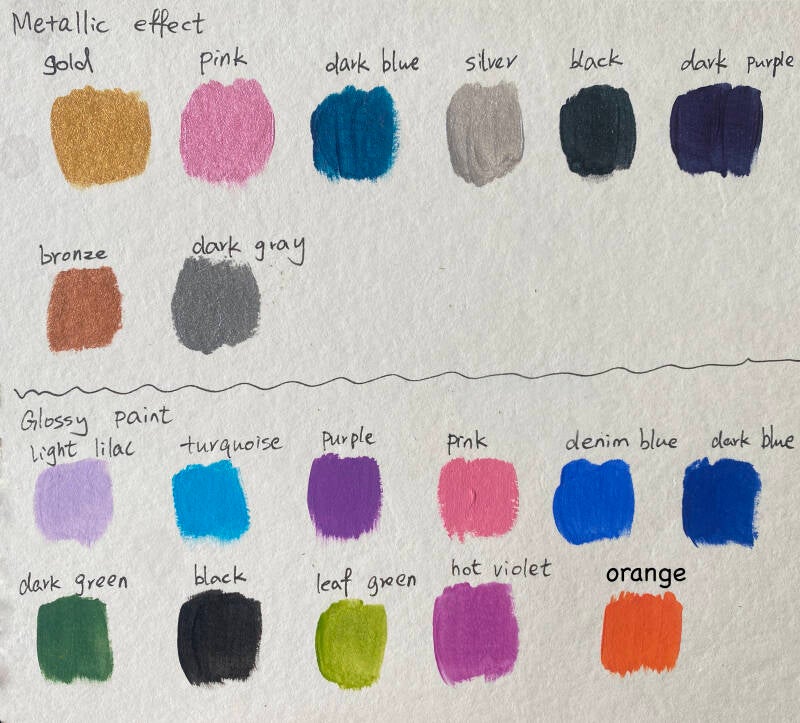 Metallic effect
gold pink dark blue silver black dark purple
bronze dark gray
Glossy paint
light lilac turquoise purple pink denim blue dark blue
dark green black leaf green hot violet orange